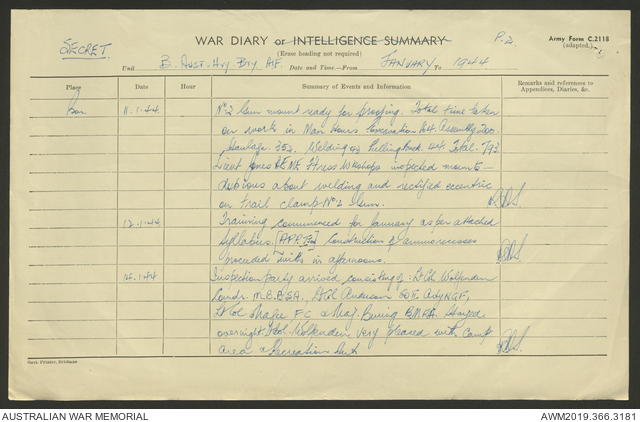 SECRET
WAR DIARY or INTELLIGENCE SUMMARY
(Erase heading not required)
P.2
Army Form C.2118
(adapted.)
Unit B. Aust. Hvy Bty AIF. Date and Time—From JANUARY To 1944
Place Date Hour Summary of Events and Information Remarks and references to Appendices, Diaries, &c.
11.1.44 No 2 Gun mount ready for proofing. Total time taken
on works in Man Hours Assembly 200.
Haulage 352. Welding & 44. Total 793
Lieut Jones REME Ftress Wkshops inspected mounts —
dubious about welding and rectified eccentric
on trail clamp No 2 Gun.
12.1.44 Training commenced for January as per attached
Syllabus. Construction of ammo recesses
proceeded with in afternoons.
Inspection Party arrived consisting of: Lt Col Wolfenden
Comdr. M.B. BSA, Lt Col Anderson NGF,
Lt Col FC & Maj. Stayed
overnight. Lt Col Wolfenden very pleased with Camp
area & Recreation Hut
Govt. Printer, Brisbane
AUSTRALIAN WAR MEMORIAL
AWM2019.366.3181